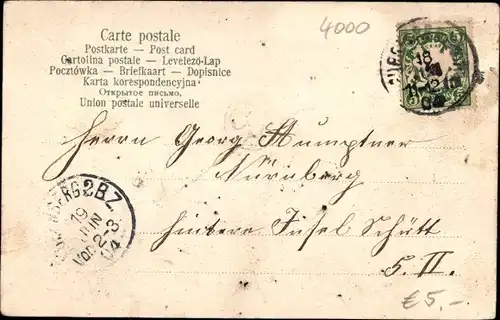 4000
Carte postale
Postkarte — Post card
Cartolina postale — Levelező-Lap
Pocztówka — Briefkaart — Dopisnice
Karta korespondencyjna
Открытое письмо.
Union postale universelle
5
18
JUN
12
04
Herrn Georg Humptner
Nürnberg
hintere Insel Schütt
5. II.
2BZ
19
JUN
Vor. 2-3
04
€5,-